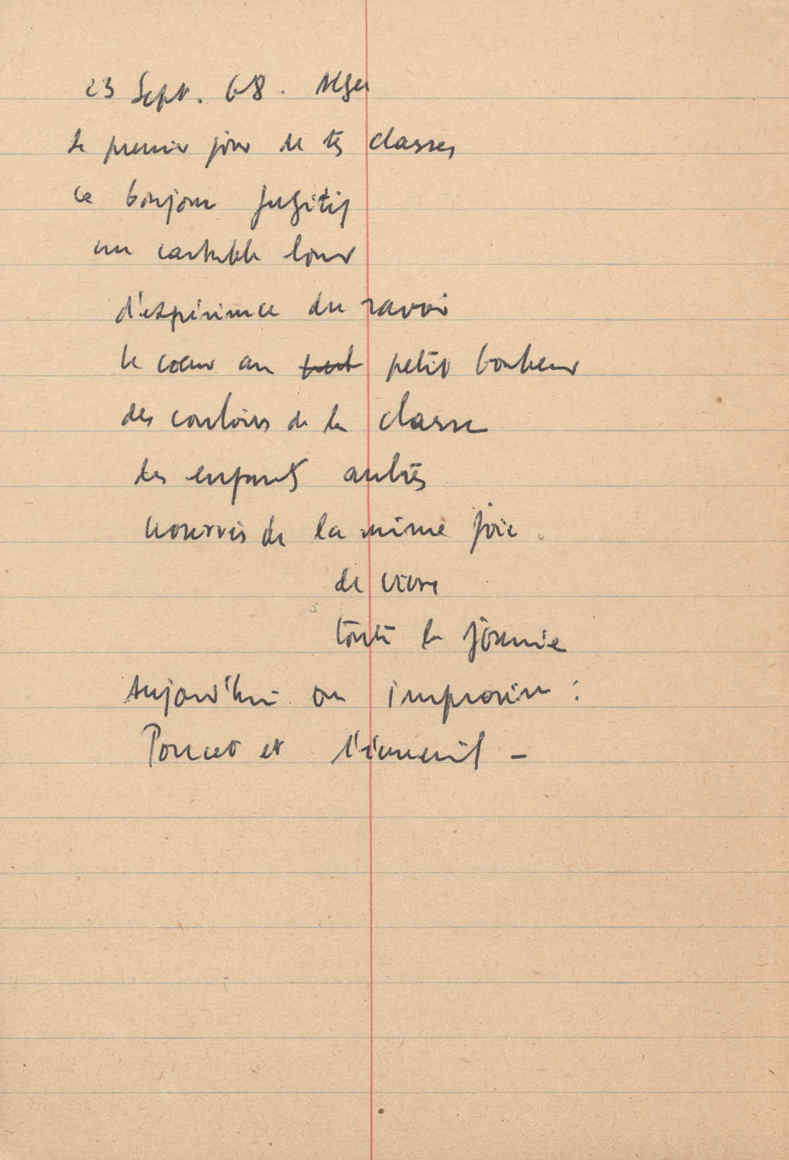 23 Sept. 68. Alger
Le premier jour de tes classes
ce bonjour fugitif
un cartable lourd
d'expérience du savoir
le cœur au petit bonheur
des couloirs de la classe
des enfants autres
nourris de la même joie
de vivre
toute la journée
Aujourd'hui on improvise :
Poucet et l'écureuil –